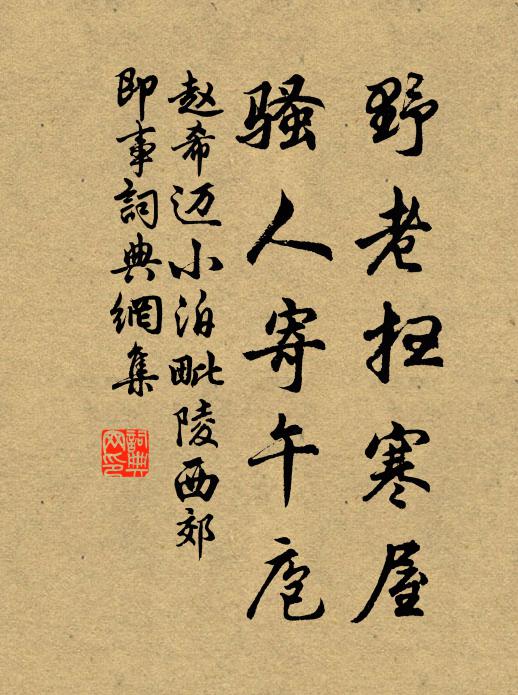 野老扫寒屋
骚人寄午庖
赵希迈小泊毗陵西郊
即事詞典網集
詞典网印